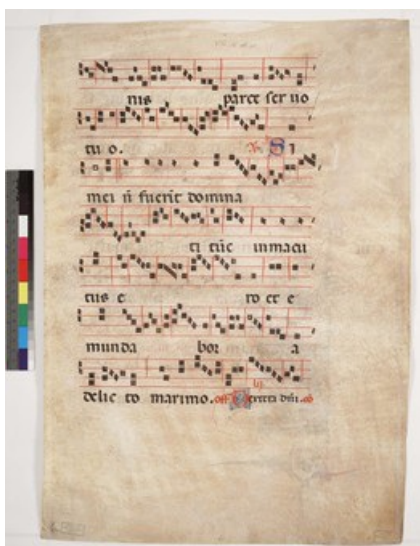 nis parce ser uo
tu o. Si
mei ñ fuerit domina
ti tūc inmacu
tus e ro et e
munda bor a
delic to maximo. off